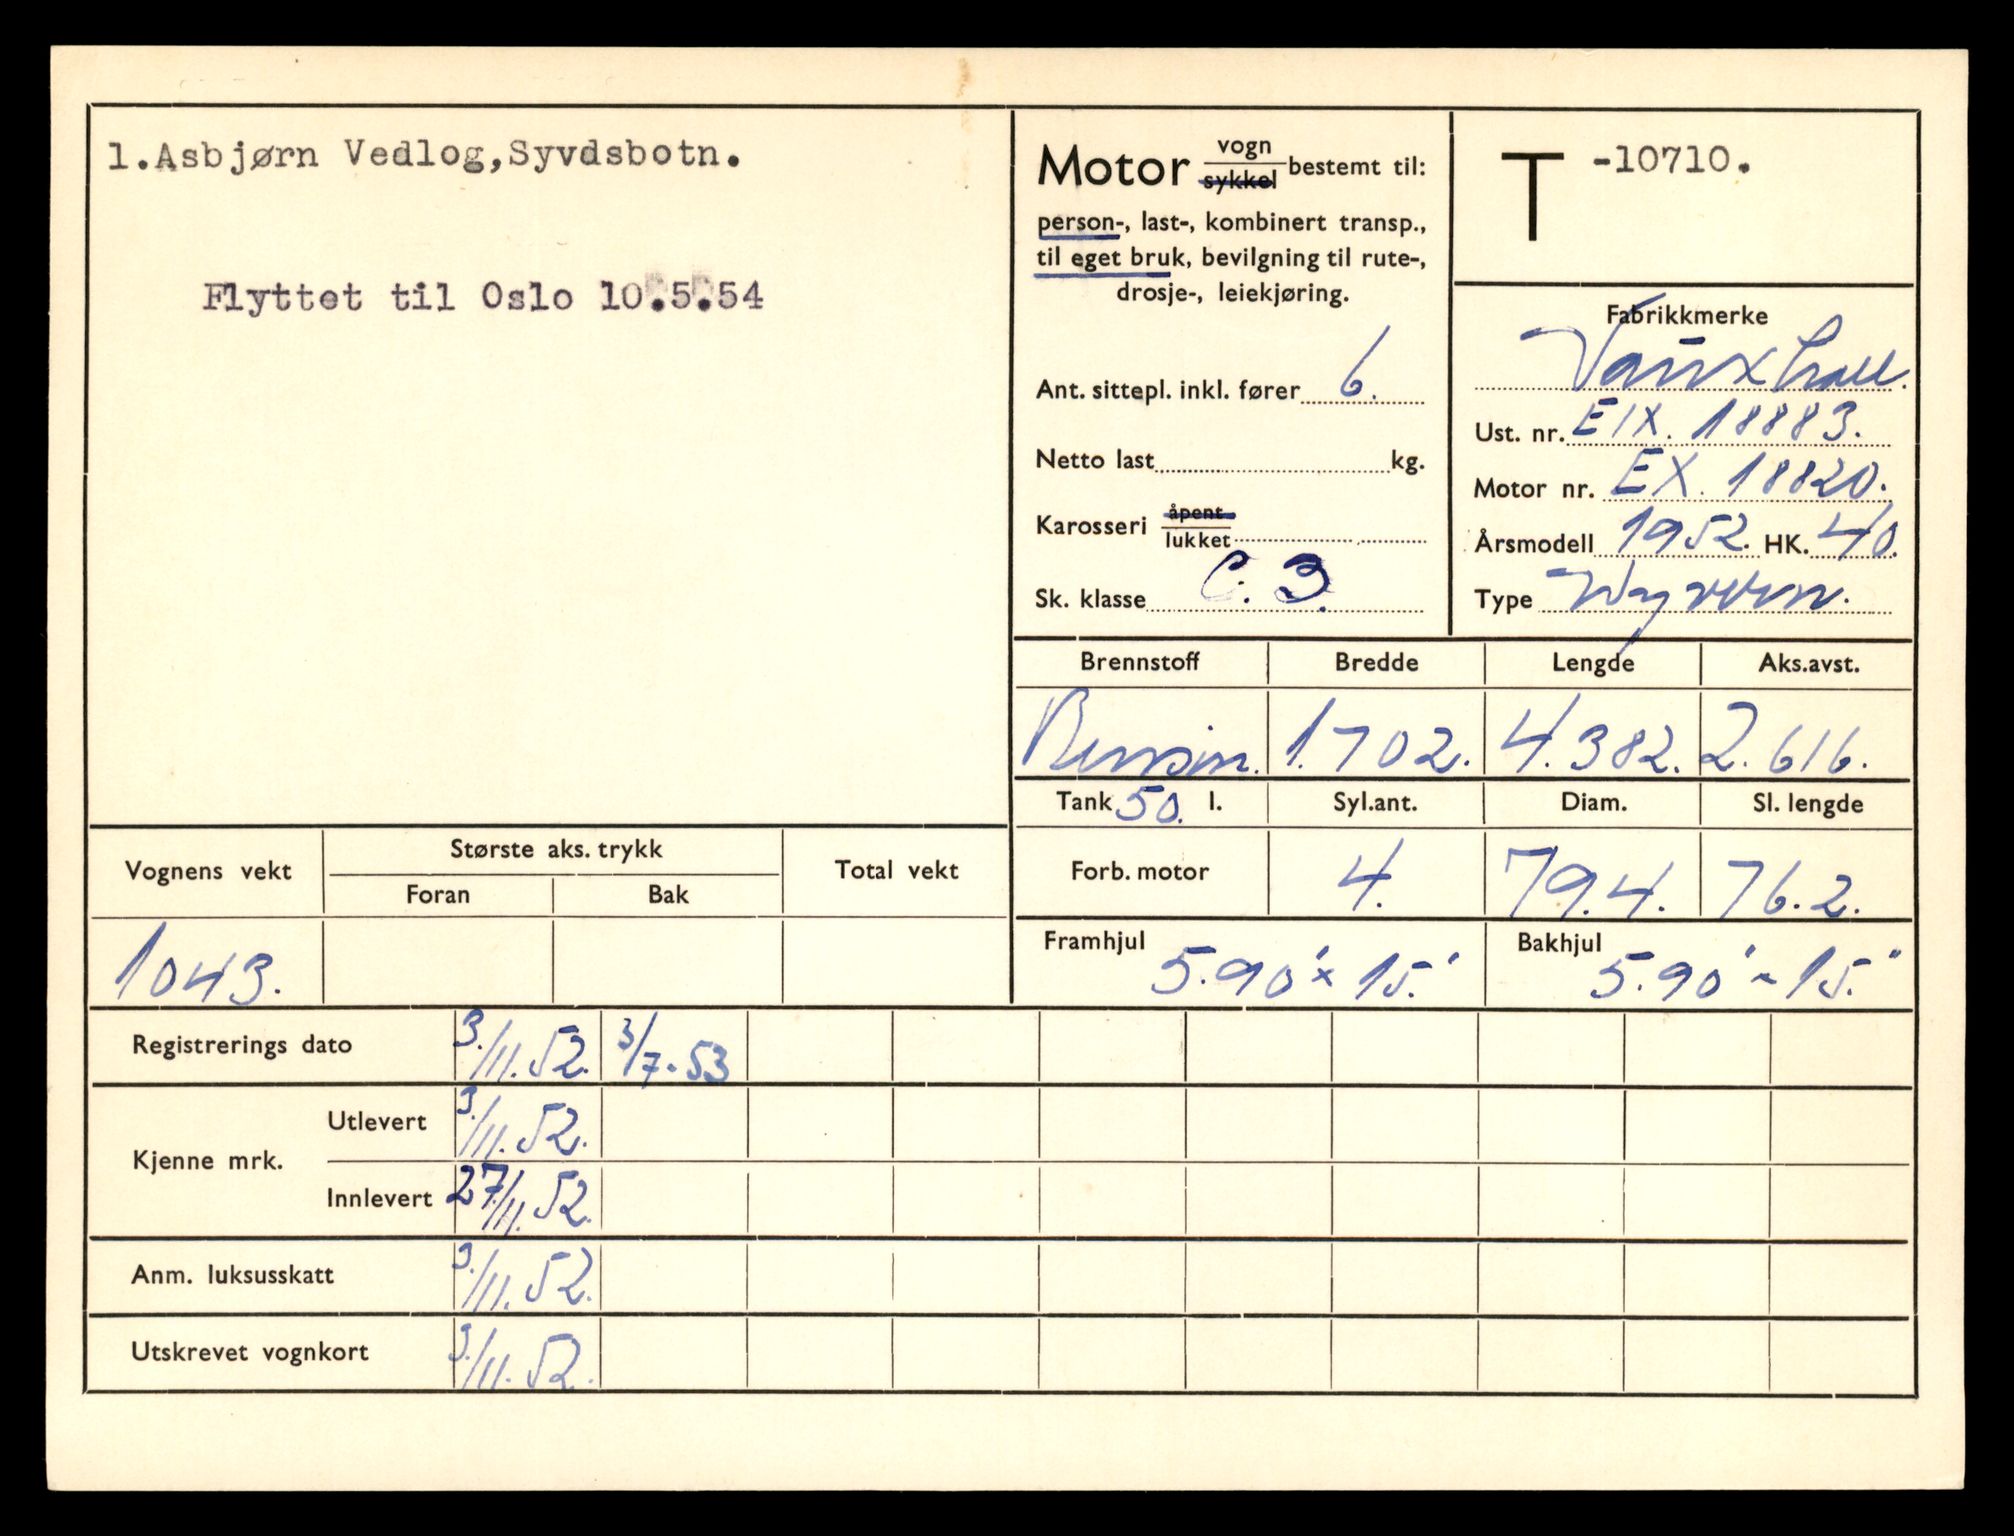 1.Asbjørn Vedlog,Syvdsbotn.
Flyttet til Oslo 10.5.54
Motor vogn sykkel bestemt til:
person-, last-, kombinert transp.,
til eget bruk, bevilgning til rute-,
drosje-, leiekjøring.
Ant. sittepl. inkl. fører 6.
Netto last kg.
Karosseri åpent lukket
Sk. klasse C. 3.
T -10710.
Fabrikkmerke
Vauxhall.
Ust. nr. EIX. 18883.
Motor nr. EX. 18820.
Årsmodell 1952. HK. 40.
Type Wyvern.
Brennstoff Bredde Lengde Aks.avst.
Bensin. 1.702. 4.382. 2.616.
Tank 50. l. Syl.ant. Diam. Sl. lengde
Forb. motor 4. 79.4. 76.2.
Framhjul 5.90" x 15." Bakhjul 5.90" x 15."
Vognens vekt Største aks. trykk Total vekt
Foran Bak
1043.
Registrerings dato 3./11.52. 3/7-53
Kjenne mrk.
Utlevert 3./11.52.
Innlevert 27/11.52.
Anm. luksusskatt 3./11.52.
Utskrevet vognkort 3/11.52.